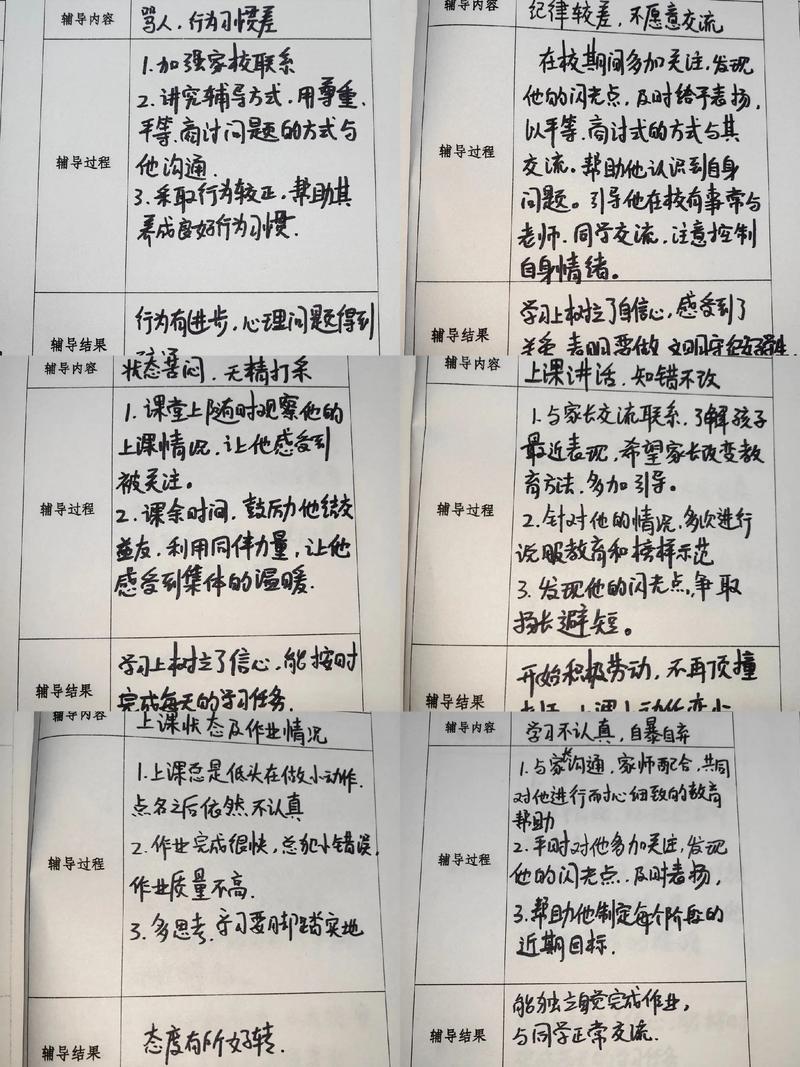 辅导内容
骂人，行为习惯差
辅导过程
1.加强家校联系
2.讲究辅导方式，用尊重、
平等、商讨问题的方式与
他沟通.
3.采取行为较正，帮助其
养成良好行为习惯.
辅导结果
行为有进步，心理问题得到
辅导内容
纪律较差，不愿意交流
辅导过程
在校期间多加关注，发现
他的闪光点，及时给予表扬，
以平等、商讨式的方式与其
交流。帮助他认识到自身
问题。引导他在校有事常与
老师、同学交流，注意控制
自身情绪。
辅导结果
学习上树立了自信心，感受到了
辅导内容
状态苦闷，无精打采
辅导过程
1.课堂上随时观察他的
上课情况，让他感受到
被关注。
2.课余时间，鼓励他结交
益友，利用同伴力量，让他
感受到集体的温暖.
辅导结果
学习上树立了信心，能按时
完成每天的学习任务.
辅导内容
上课讲话，知错不改
辅导过程
1.与家长交流联系，了解孩子
最近表现，希望家长改变教
育方法，多加引导。
2.针对他的情况，多次进行
说服教育和榜样示范
3.发现他的闪光点，争取
扬长避短。
辅导结果
开始积极劳动，不再顶撞
辅导内容
上课状态及作业情况
辅导过程
1.上课总是低头在做小动作，
点名之后依然不认真
2.作业完成很快，总犯小错误，
作业质量不高.
3.多思考，学习要用脚踏实地
辅导结果
态度有所好转.
辅导内容
学习不认真，自暴自弃
辅导过程
1.与家长沟通，家师配合，共同
对他进行耐心细致的教育
帮助
2.平时对他多加关注，发现
他的闪光点，及时表扬，
3.帮助他制定每个阶段的
近期目标.
辅导结果
能独立自觉完成作业，
与同学正常交流.